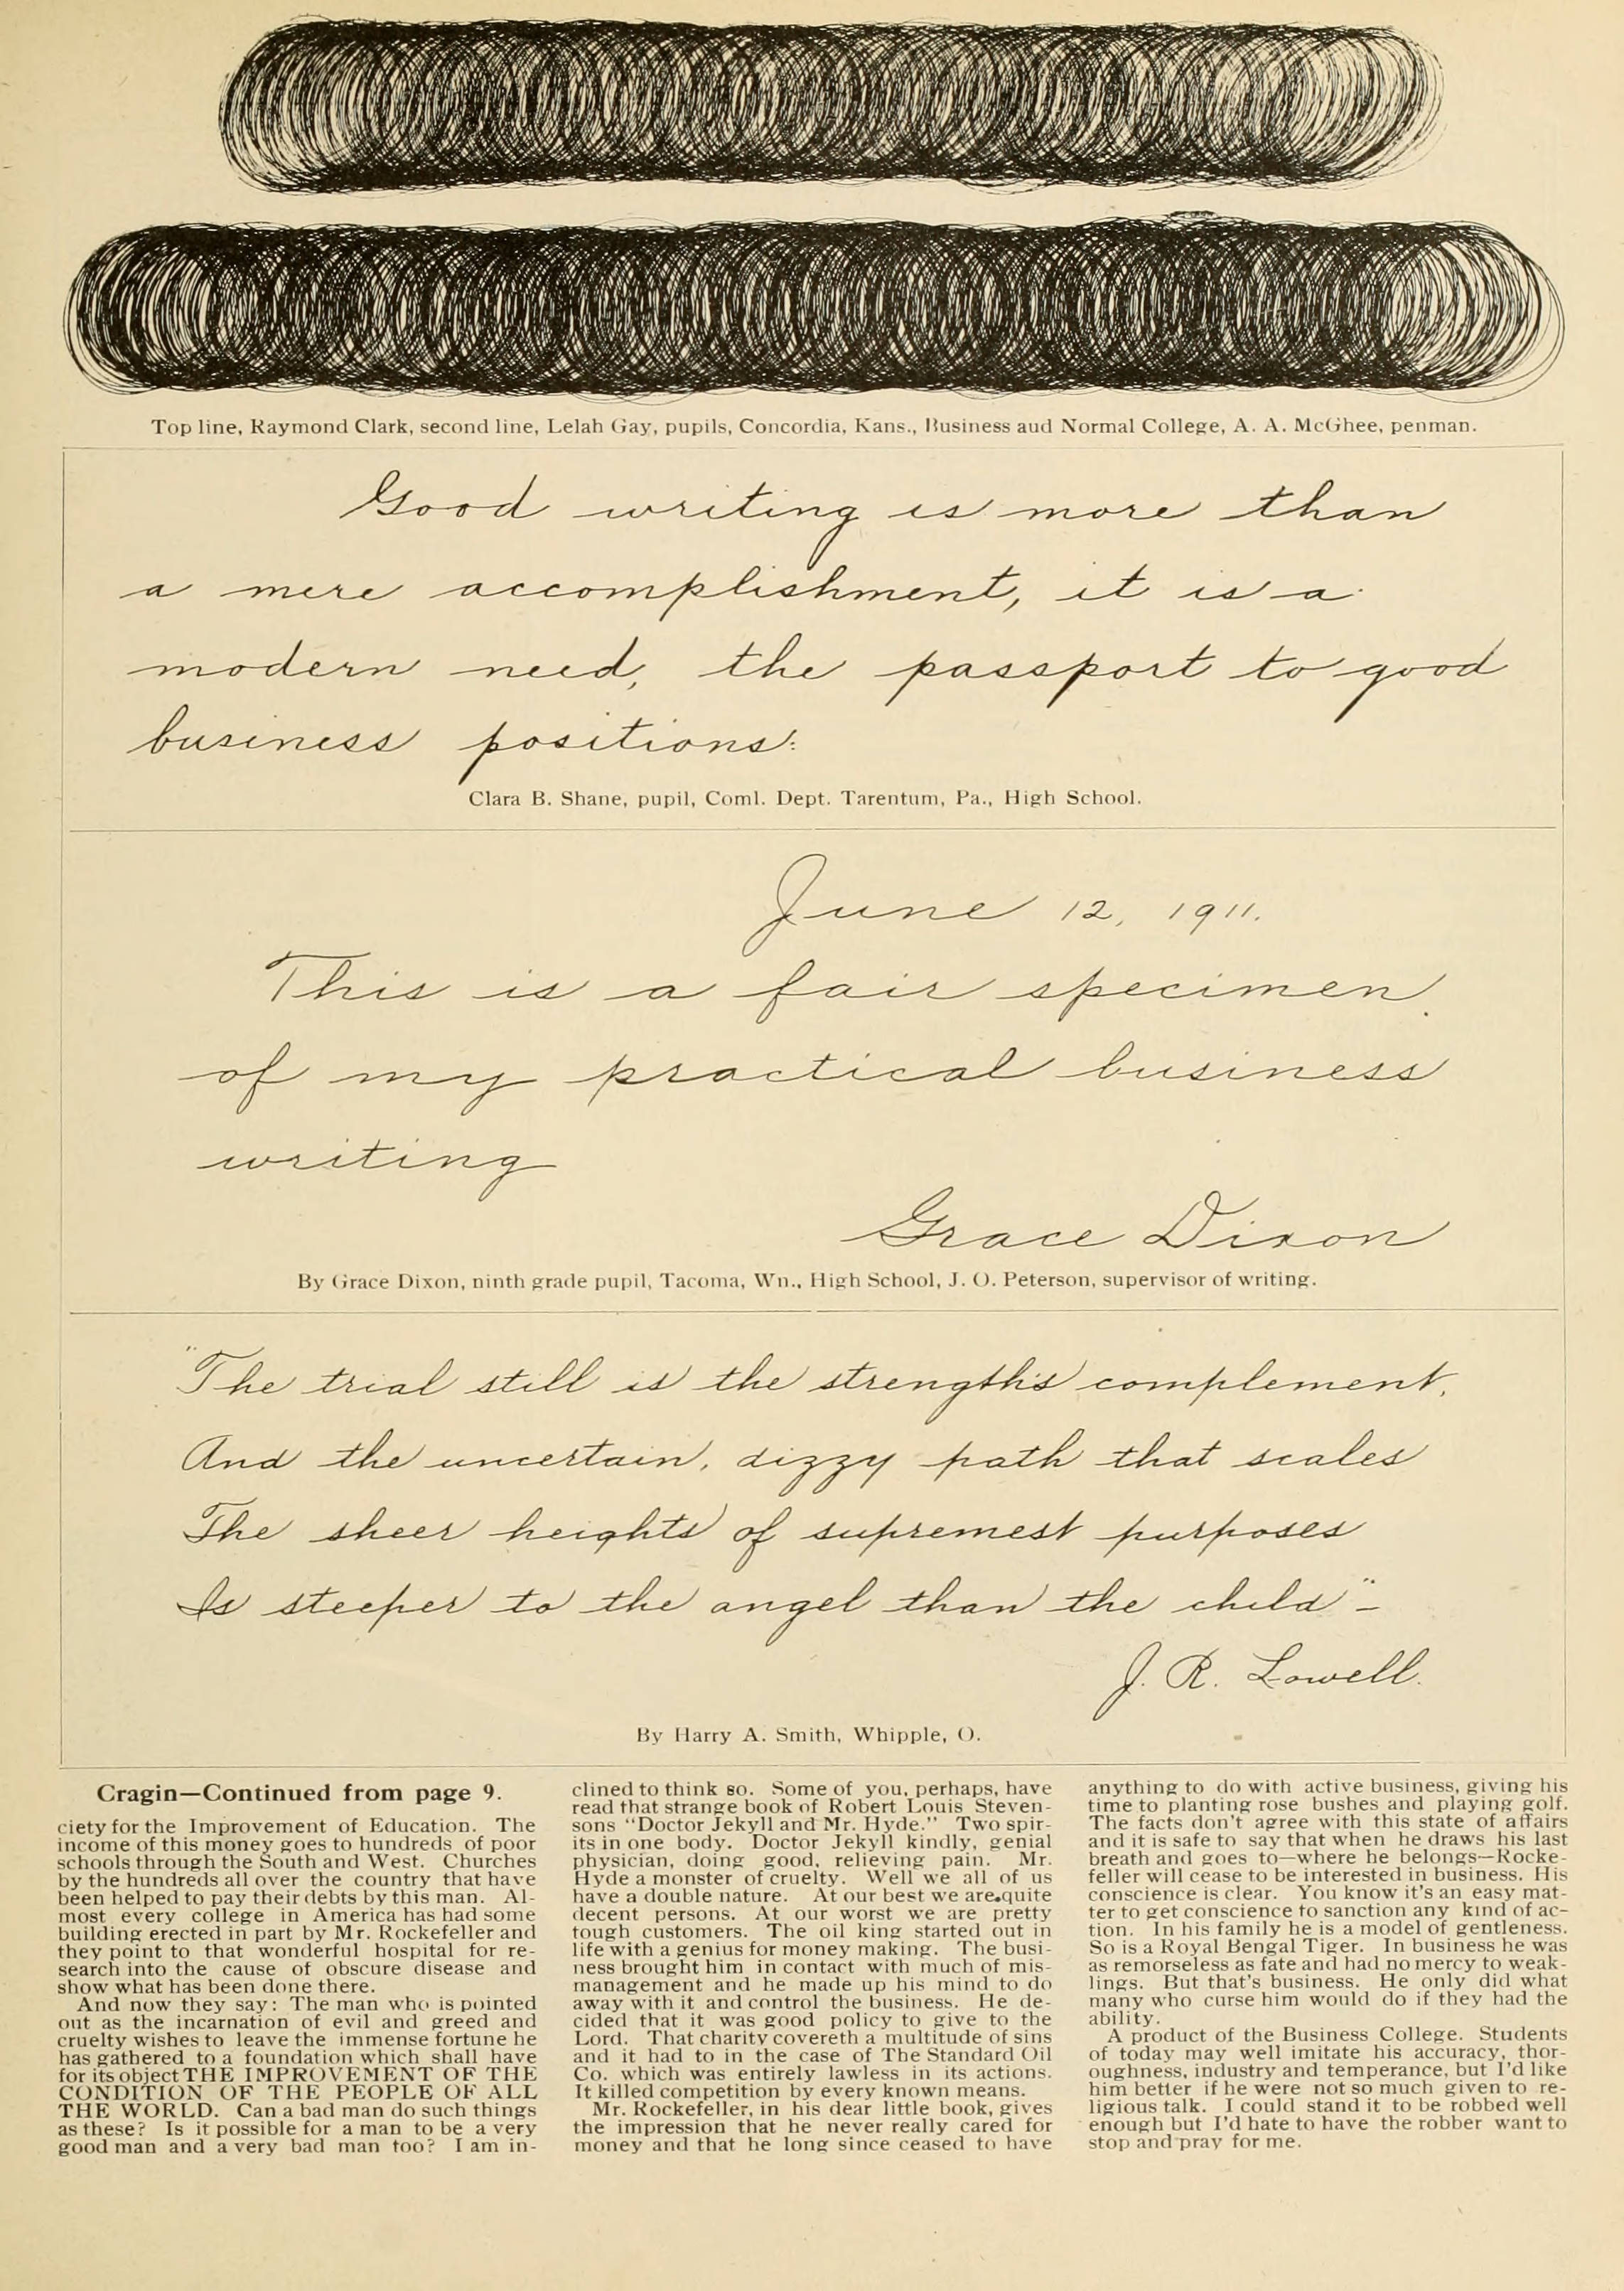 Top line, Raymond Clark, second line, Lelah Gay, pupils, Concordia, Kans., Business aud Normal College, A. A. McGhee, penman.
Good writing is more than
a mere accomplishment, it is a
modern need, the passport to good
business positions.
Clara B. Shane, pupil, Coml. Dept. Tarentum, Pa., High School.
June 12, 1911.
This is a fair specimen
of my practical business
writing
Grace Dixon
By Grace Dixon, ninth grade pupil, Tacoma, Wn., High School, J. O. Peterson, supervisor of writing.
"The trial still is the strength's complement,
And the uncertain, dizzy path that scales
The sheer heights of supremest purposes
Is steeper to the angel than the child" –
J. R. Lowell.
By Harry A. Smith, Whipple, O.
Cragin—Continued from page 9.
ciety for the Improvement of Education. The
income of this money goes to hundreds of poor
schools through the South and West. Churches
by the hundreds all over the country that have
been helped to pay their debts by this man. Al-
most every college in America has had some
building erected in part by Mr. Rockefeller and
they point to that wonderful hospital for re-
search into the cause of obscure disease and
show what has been done there.
And now they say: The man who is pointed
out as the incarnation of evil and greed and
cruelty wishes to leave the immense fortune he
has gathered to a foundation which shall have
for its object THE IMPROVEMENT OF THE
CONDITION OF THE PEOPLE OF ALL
THE WORLD. Can a bad man do such things
as these? Is it possible for a man to be a very
good man and a very bad man too? I am in-
clined to think so. Some of you, perhaps, have
read that strange book of Robert Louis Steven-
sons "Doctor Jekyll and Mr. Hyde." Two spir-
its in one body. Doctor Jekyll kindly, genial
physician, doing good, relieving pain. Mr.
Hyde a monster of cruelty. Well we all of us
have a double nature. At our best we are quite
decent persons. At our worst we are pretty
tough customers. The oil king started out in
life with a genius for money making. The busi-
ness brought him in contact with much of mis-
management and he made up his mind to do
away with it and control the business. He de-
cided that it was good policy to give to the
Lord. That charity covereth a multitude of sins
and it had to in the case of The Standard Oil
Co. which was entirely lawless in its actions.
It killed competition by every known means.
Mr. Rockefeller, in his dear little book, gives
the impression that he never really cared for
money and that he long since ceased to have
anything to do with active business, giving his
time to planting rose bushes and playing golf.
The facts don't agree with this state of affairs
and it is safe to say that when he draws his last
breath and goes to—where he belongs—Rocke-
feller will cease to be interested in business. His
conscience is clear. You know it's an easy mat-
ter to get conscience to sanction any kind of ac-
tion. In his family he is a model of gentleness.
So is a Royal Bengal Tiger. In business he was
as remorseless as fate and had no mercy to weak-
lings. But that's business. He only did what
many who curse him would do if they had the
ability.
A product of the Business College. Students
of today may well imitate his accuracy, thor-
oughness, industry and temperance, but I'd like
him better if he were not so much given to re-
ligious talk. I could stand it to be robbed well
enough but I'd hate to have the robber want to
stop and pray for me.